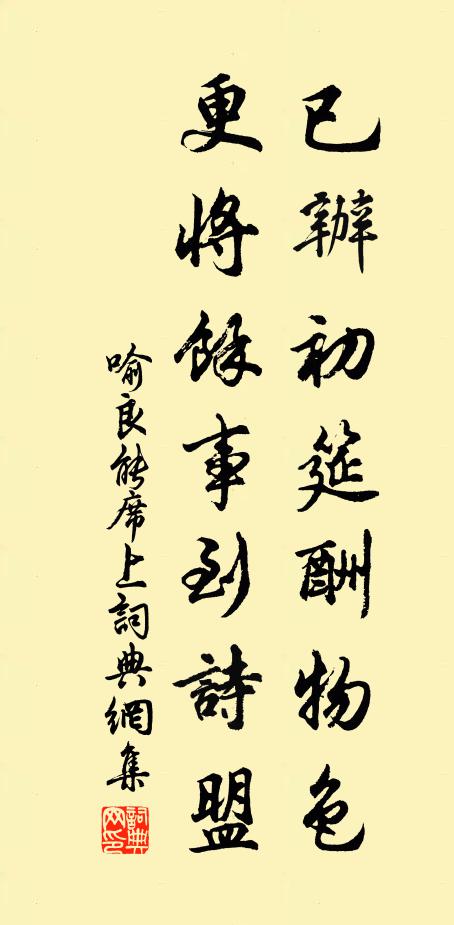 已辦初筵酬物色
更將餘事到詩盟
喻良能席上詞典網集
詞典網印